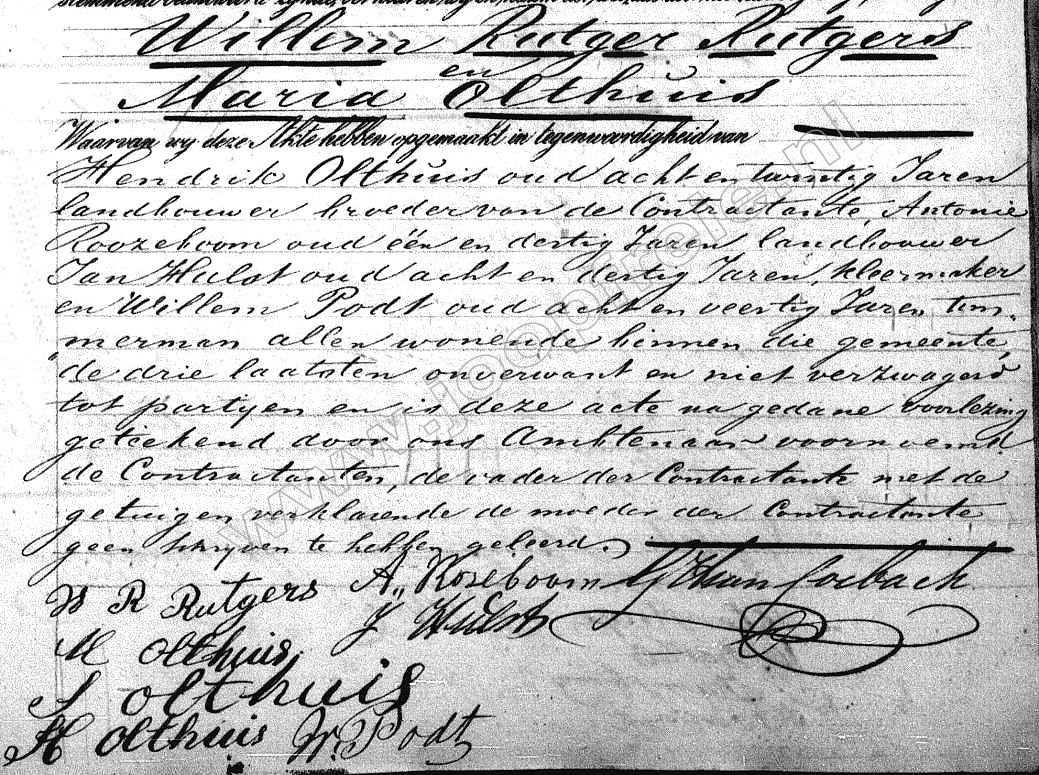 Willem Rutger Rutgers
en
Maria Olthuis
Waarvan wij deze Akte hebben opgemaakt in tegenwoordigheid van
Hendrik Olthuis oud acht en twintig Jaren
landbouwer broeder van de Contractante, Antonie
Roozeboom oud één en dertig Jaren landbouwer
Jan Hulst oud acht en dertig Jaren, kleermaker
en Willem Podt oud acht en veertig Jaren tim-
merman allen wonende binnen die gemeente,
de drie laatsten onverwant en niet verzwagerd
tot partyen en is deze acte na gedane voorlezing
geteekend door ons Ambtenaar voornoemd
de Contractanten, de vader der Contractante met de
getuigen verklarende de moeder der Contractante
geen schryven te hebben geleerd.
W R Rutgers A,, Roseboom
M Olthuis J Hulst
J olthuis
H olthuis W. Podt
www.jooprele.nl